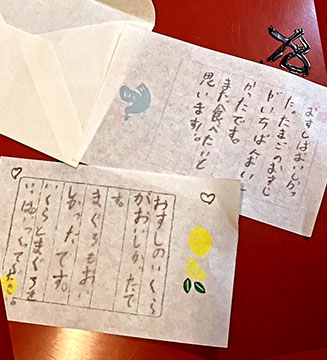 おすしはおいしかっ
た。たまごのおすし
がいちばんおいし
かったです。
また食べたいと
思います。
おすしのいくら
がおいしかったで
す。
まぐろもおい
しかったです。
いくらとまぐろを